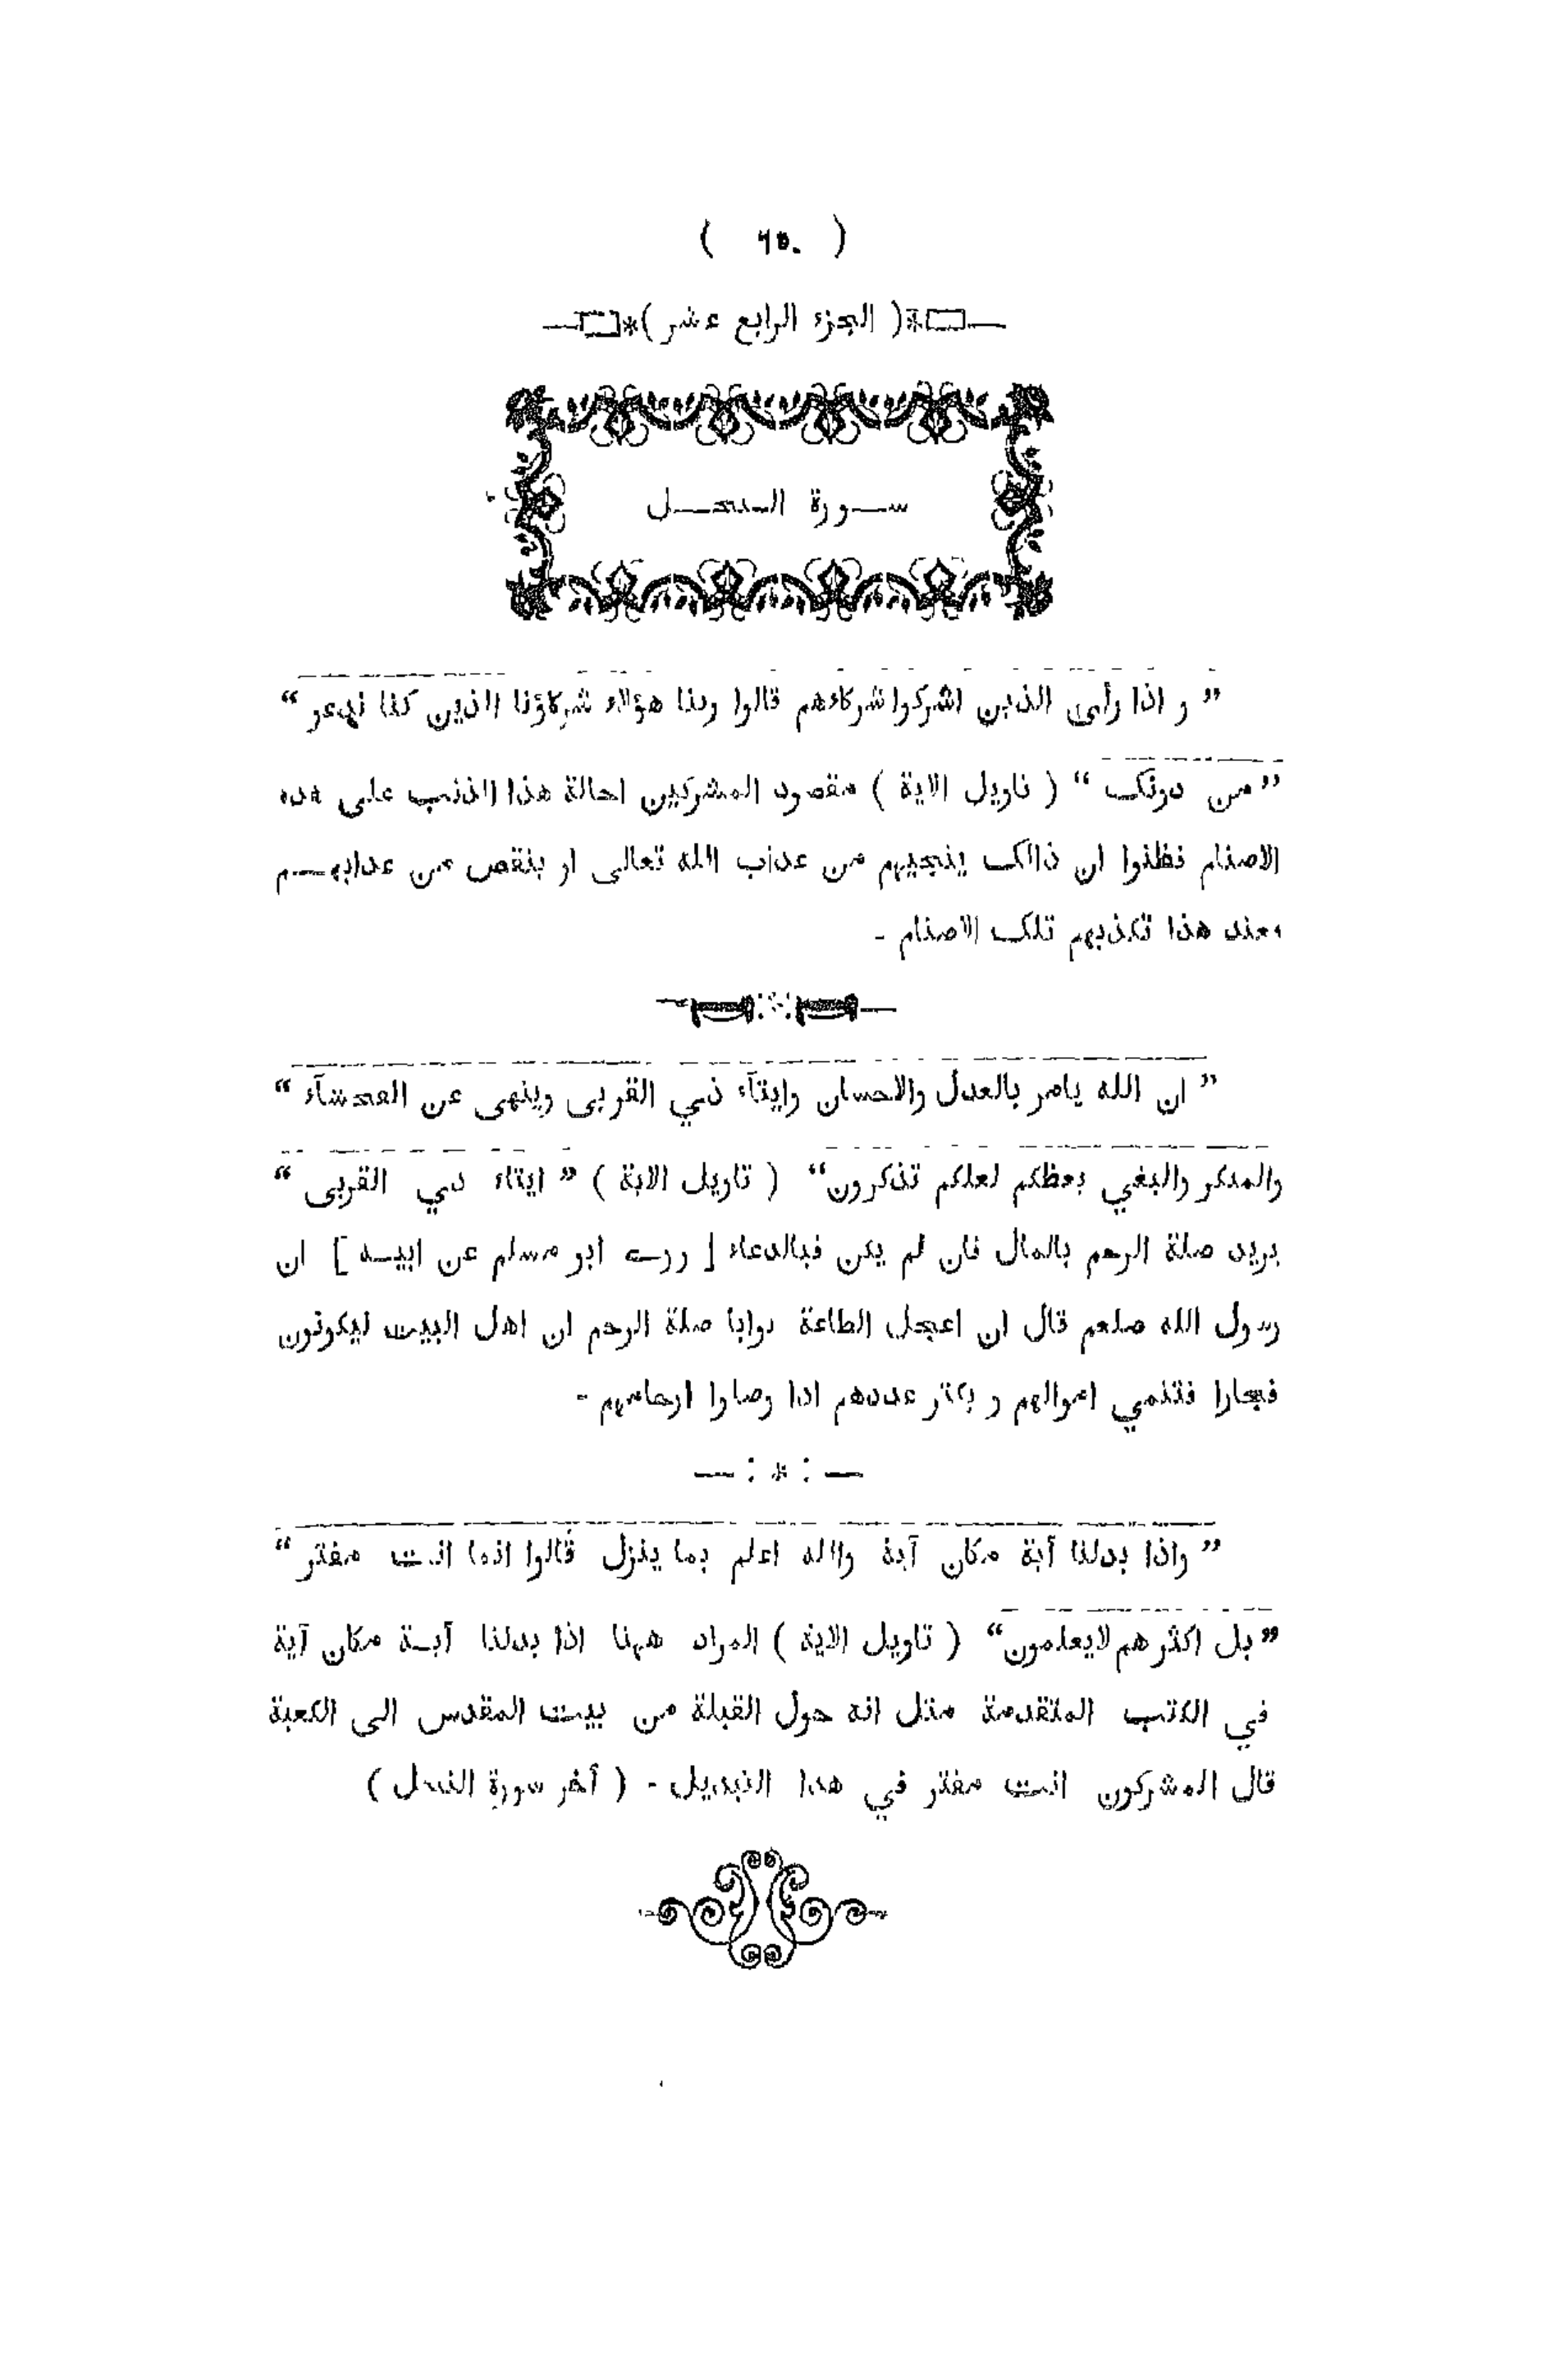 ( ٦٥٠ )
( الجزء الرابع عشر )
ســـورة النحـــل
” و اذا رأى الذين اشركوا شركاءهم قالوا ربنا هؤلاء شركاؤنا الذين كنا ندعو “
” من دونك “ ( تاويل الاية ) مقصود المشركين احالة هذا الذنب على هذه
الاصنام فظنوا ان ذالك ينجيهم من عذاب الله تعالى او ينقص من عذابهـــم
فعند هذا تكذبهم تلك الاصنام -
” ان الله يامر بالعدل والاحسان وايتآء ذي القربى وينهى عن الفحشآء “
والمنكر والبغي يعظكم لعلكم تذكرون“ ( تاويل الاية ) ” ايتاء ذي القربى “
يريد صلة الرحم بالمال فان لم يكن فبالدعاء [ روى ابو مسلم عن ابيـــه ] ان
رسول الله صلعم قال ان اعجل الطاعة ثوابا صلة الرحم ان اهل البيت ليكونون
فجارا فتنمي اموالهم و يكثر عددهم اذا وصلوا ارحامهم -
— : * : —
” واذا بدلنا آية مكان آية والله اعلم بما ينزل قالوا انما انت مفتر “
” بل اكثرهم لايعلمون“ ( تاويل الاية ) المراد ههنا اذا بدلنا آيـة مكان آية
في الكتب المتقدمة مثل انه حول القبلة من بيت المقدس الى الكعبة
قال المشركون انت مفتر في هذا التبديل - ( آخر سورة النحل )